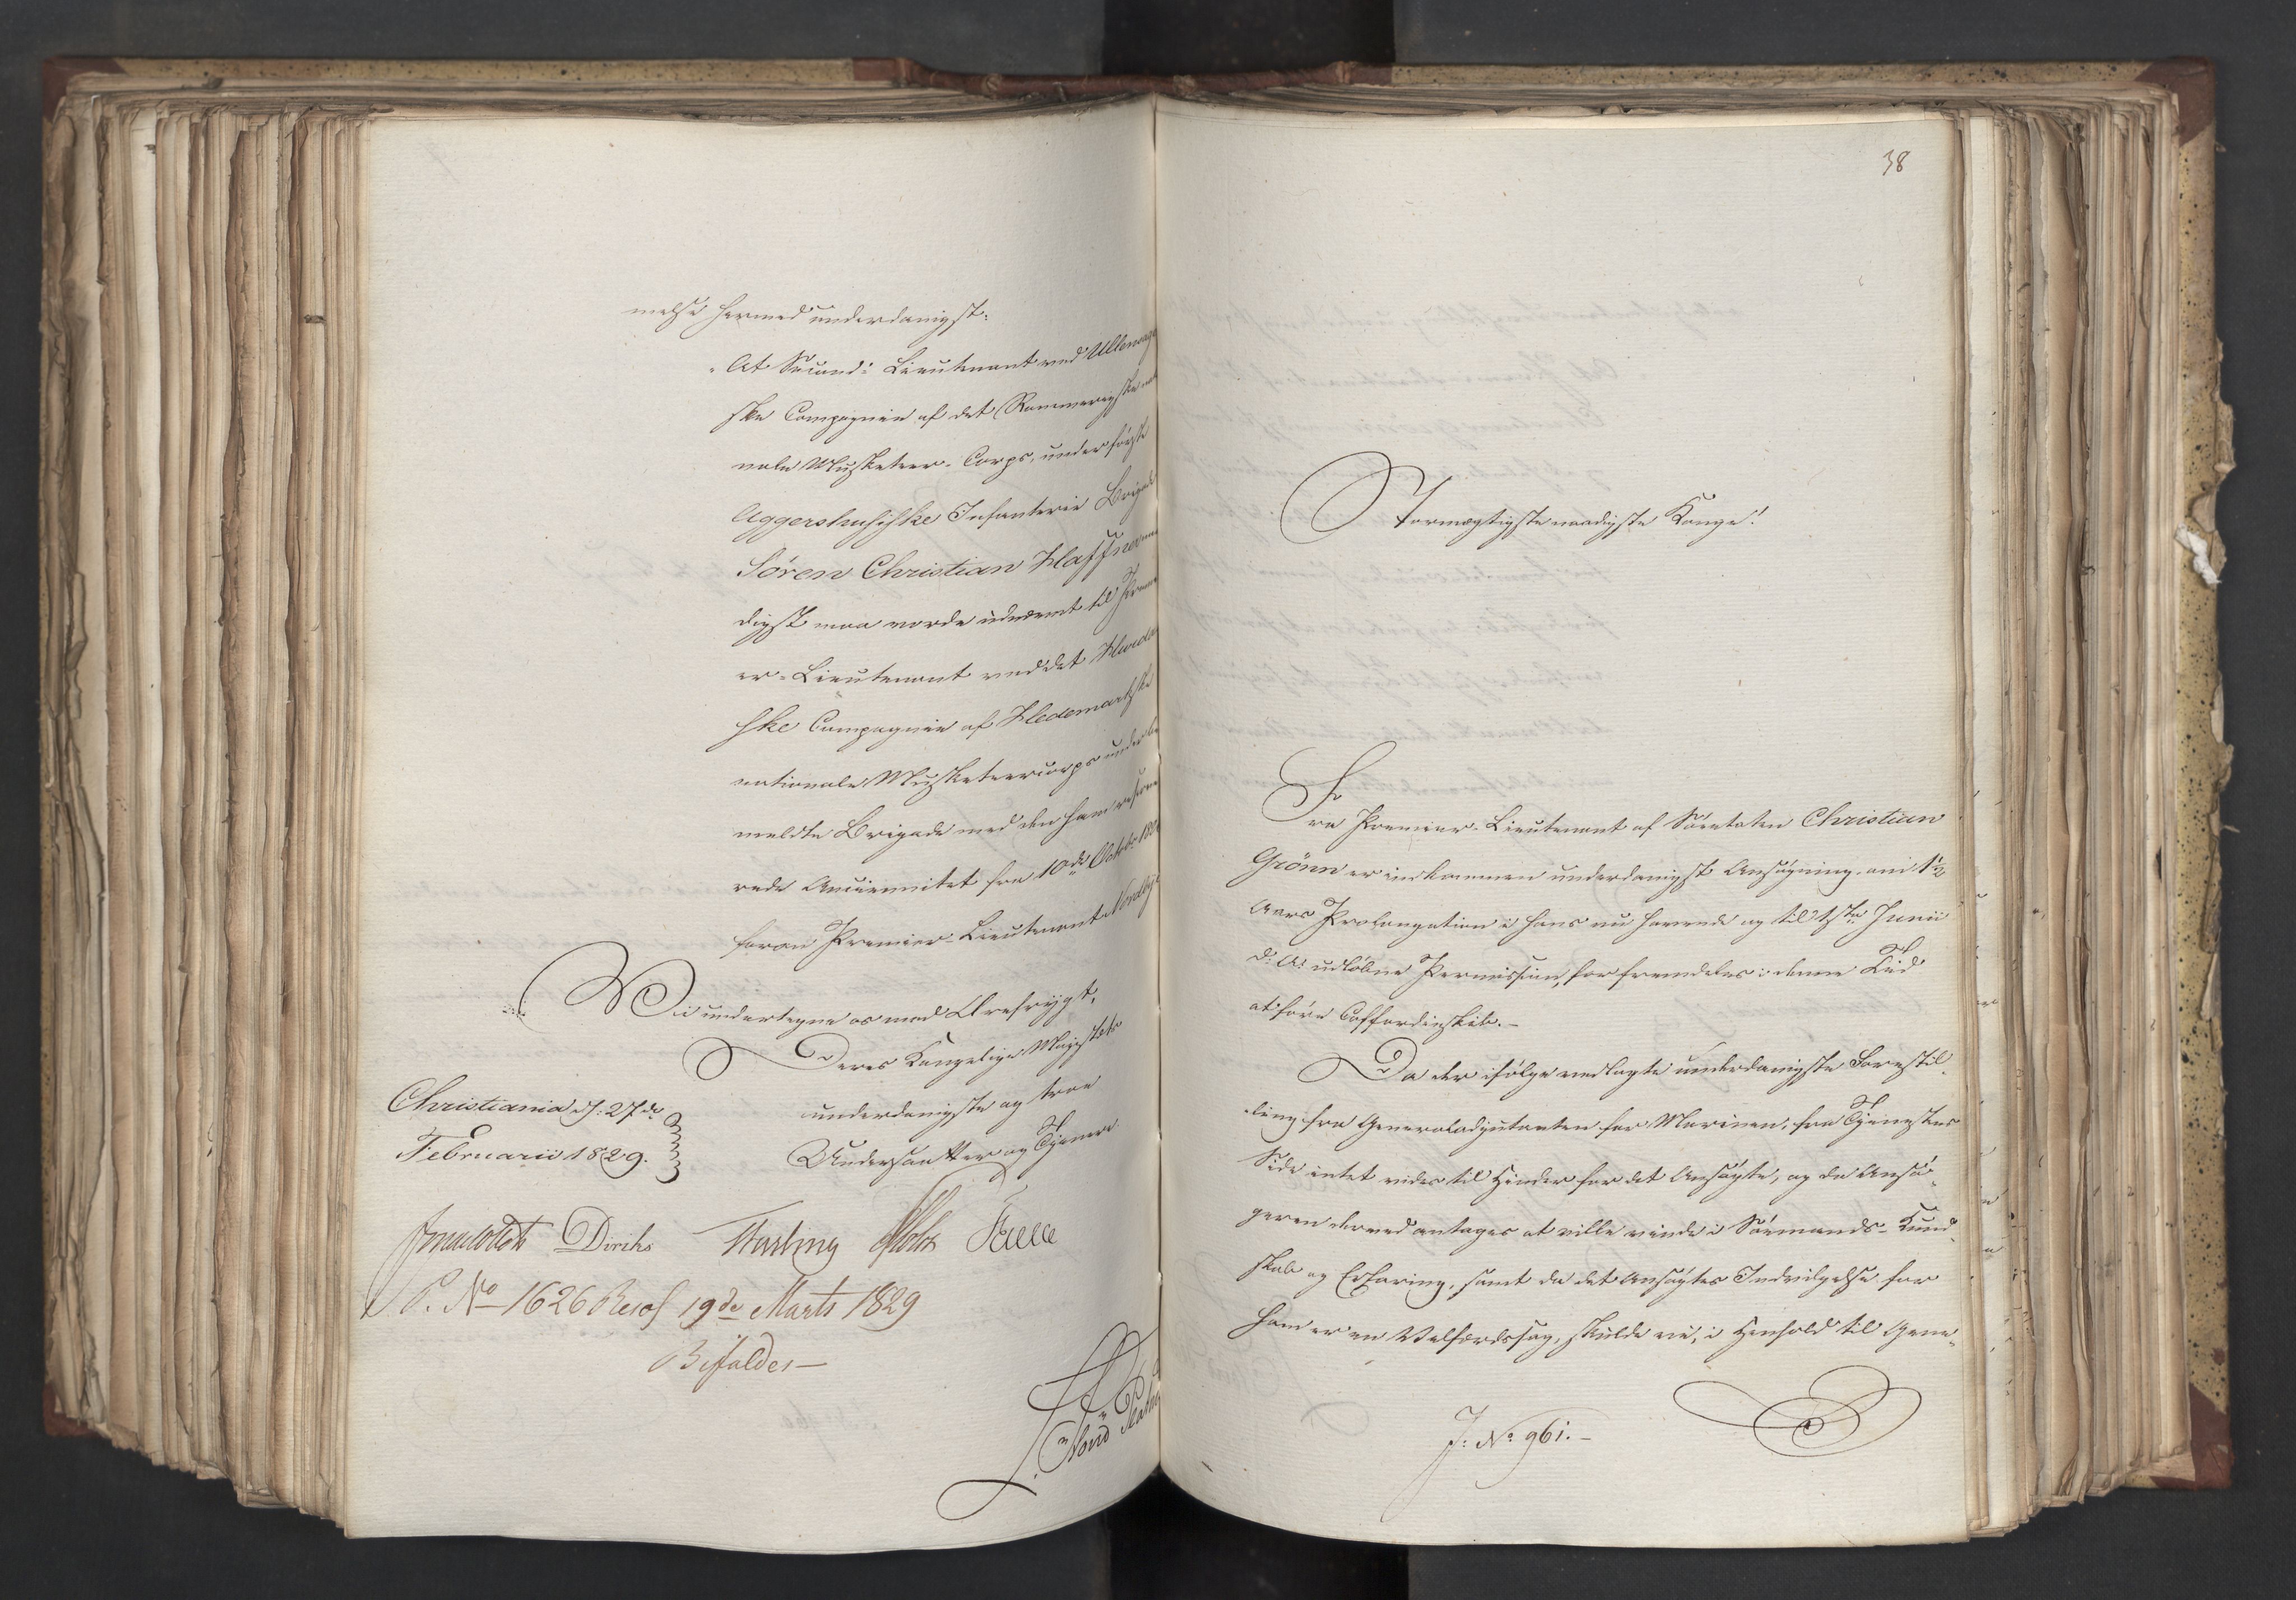 melse hermed underdanigst:
"At Second-Lieutenant ved Ullensager
ske Compagnie af det Rommerigske natio
nale Musketeer-Corps, under første
Aggershusiske Infanterie Brigade
Sören Christian Haffner naa
digst maa vorde udnævnt til Premi
er-Lieutenant ved det
ske Compagnie af Hedemarkske
nationale Musketeercorps under be
meldte Brigade med den ham reserve
rede Anciennitet fra 10de Octobr
foran Premier-Lieutenant
Vi undertegne os med Ærefrygt,
Deres Kongelige Majestæts
underdanigste og troe
Undersaatter og Tjenere
Christiania d: 27de
Februarii 1829.
Diriks Fasting Holst
P. No 1626 Resol 19de Marts 1829
Bifaldes—
38
Stormægtigste naadigste Konge!
Fra Premier-Lieutenant af Söeetaten Christian
Grönn er indkommen underdanigst Ansøgning om 1½
Aars Prolongation i hans nu havende og til 1ste Junii
d: A: udløbne Permission, for fremdeles i denne Tid
at føre Coffardieskib.—
Da der ifølge vedlagte underdanigste Forestil-
ling fra Generaladjutanten for Marinen, fra Tjenestens
Side intet vides til Hinder for det Ansøgte, og da Ansø-
geren derved antages at ville vinde i Sømands-Kund-
skab og Erfaring, samt da det Ansøgtes Indvilgelse for
ham er en Velfærdssag, skulde vi, i Henhold til Gene-
J: No 961.—